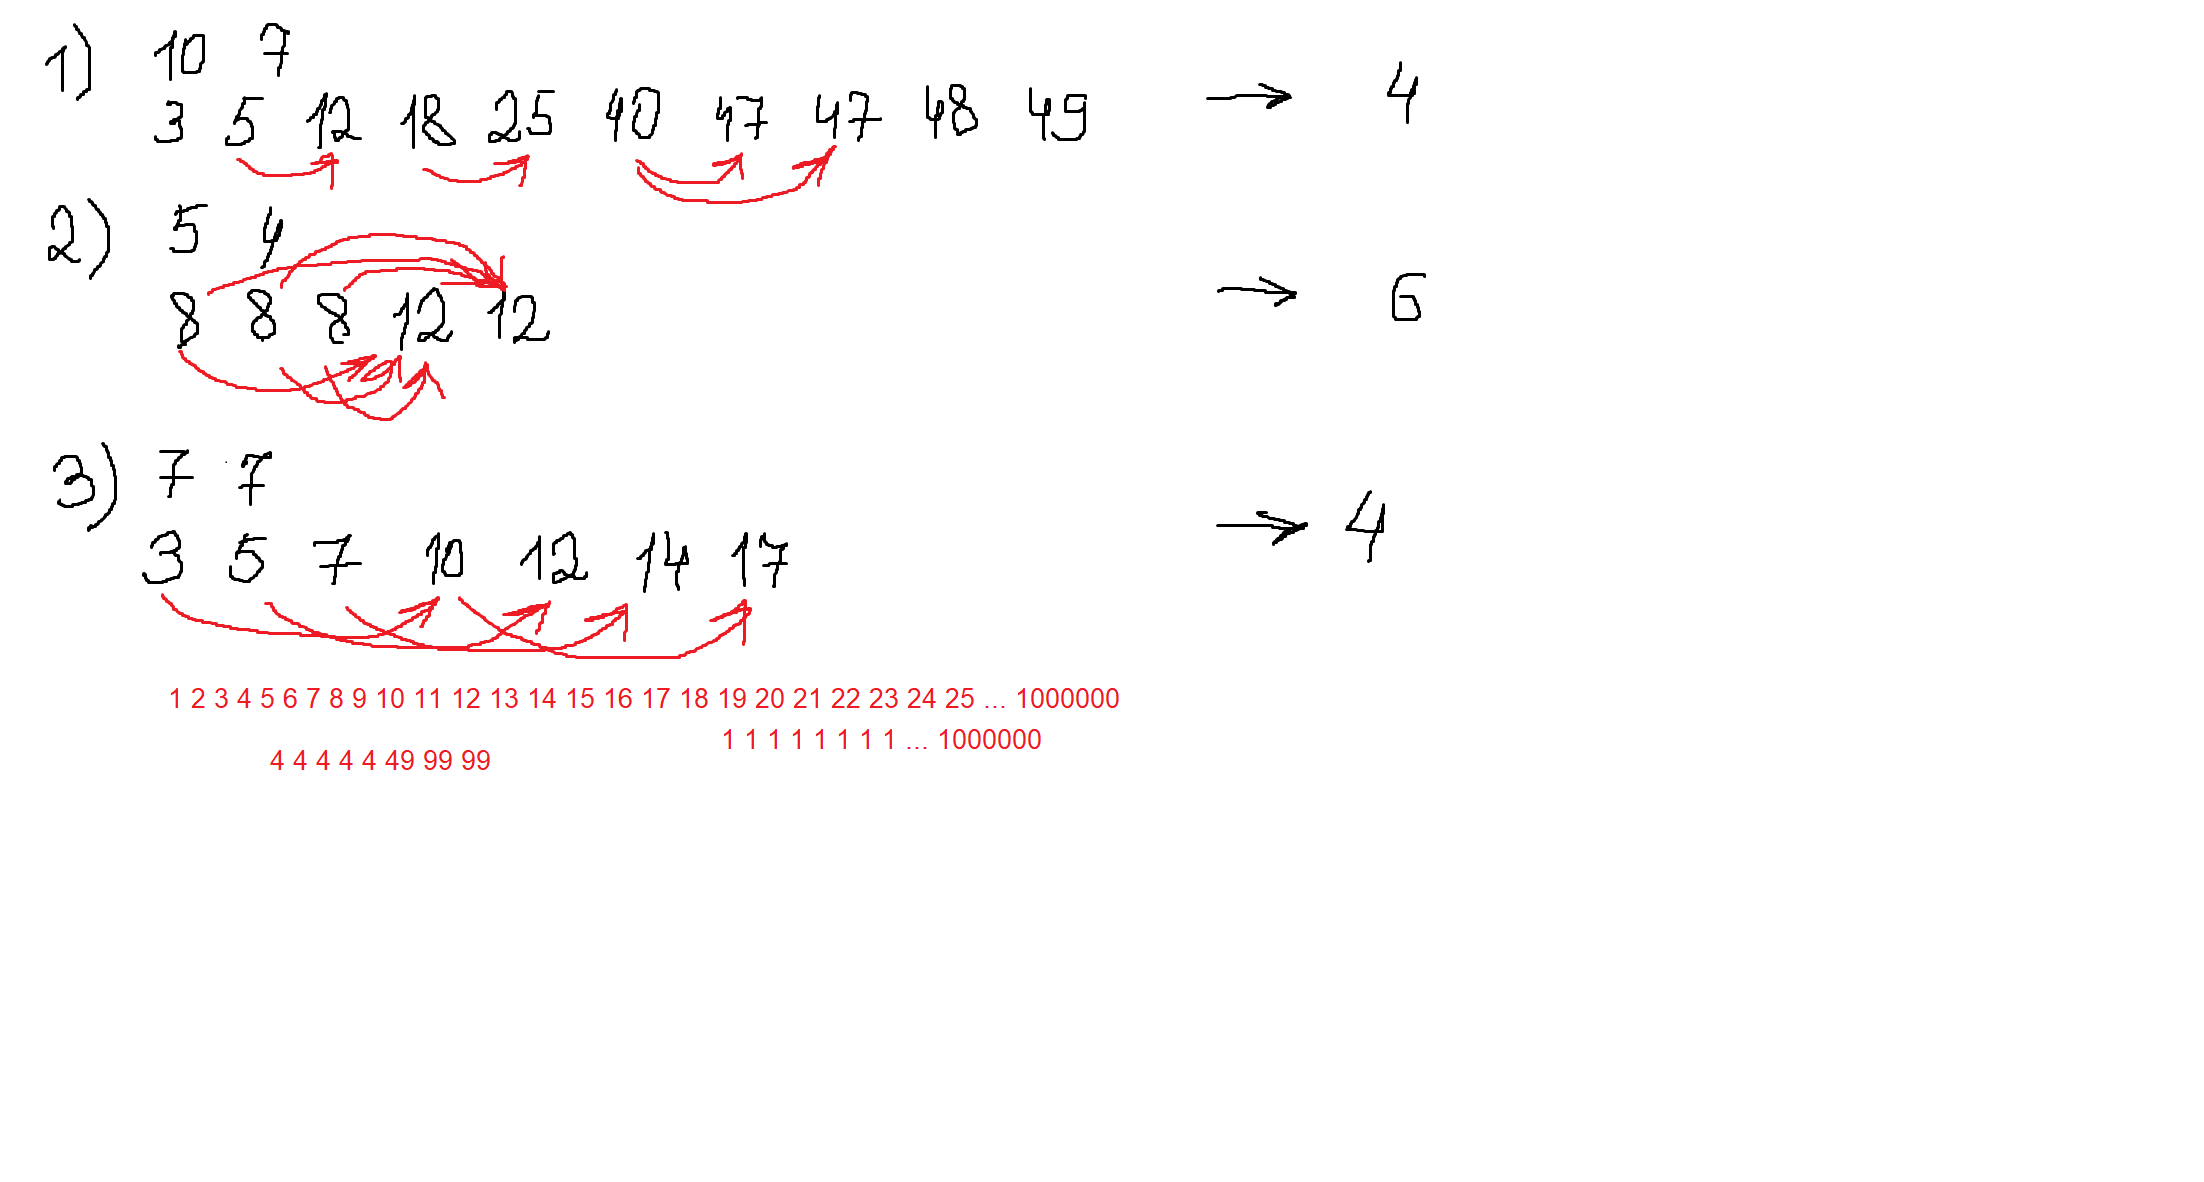 1) 10 7
3 5 12 18 25 40 47 47 48 49 → 4
2) 5 4
8 8 8 12 12 → 6
3) 7 7
3 5 7 10 12 14 17 → 4
1 2 3 4 5 6 7 8 9 10 11 12 13 14 15 16 17 18 19 20 21 22 23 24 25 ... 1000000
1 1 1 1 1 1 1 1 ... 1000000
4 4 4 4 4 49 99 99